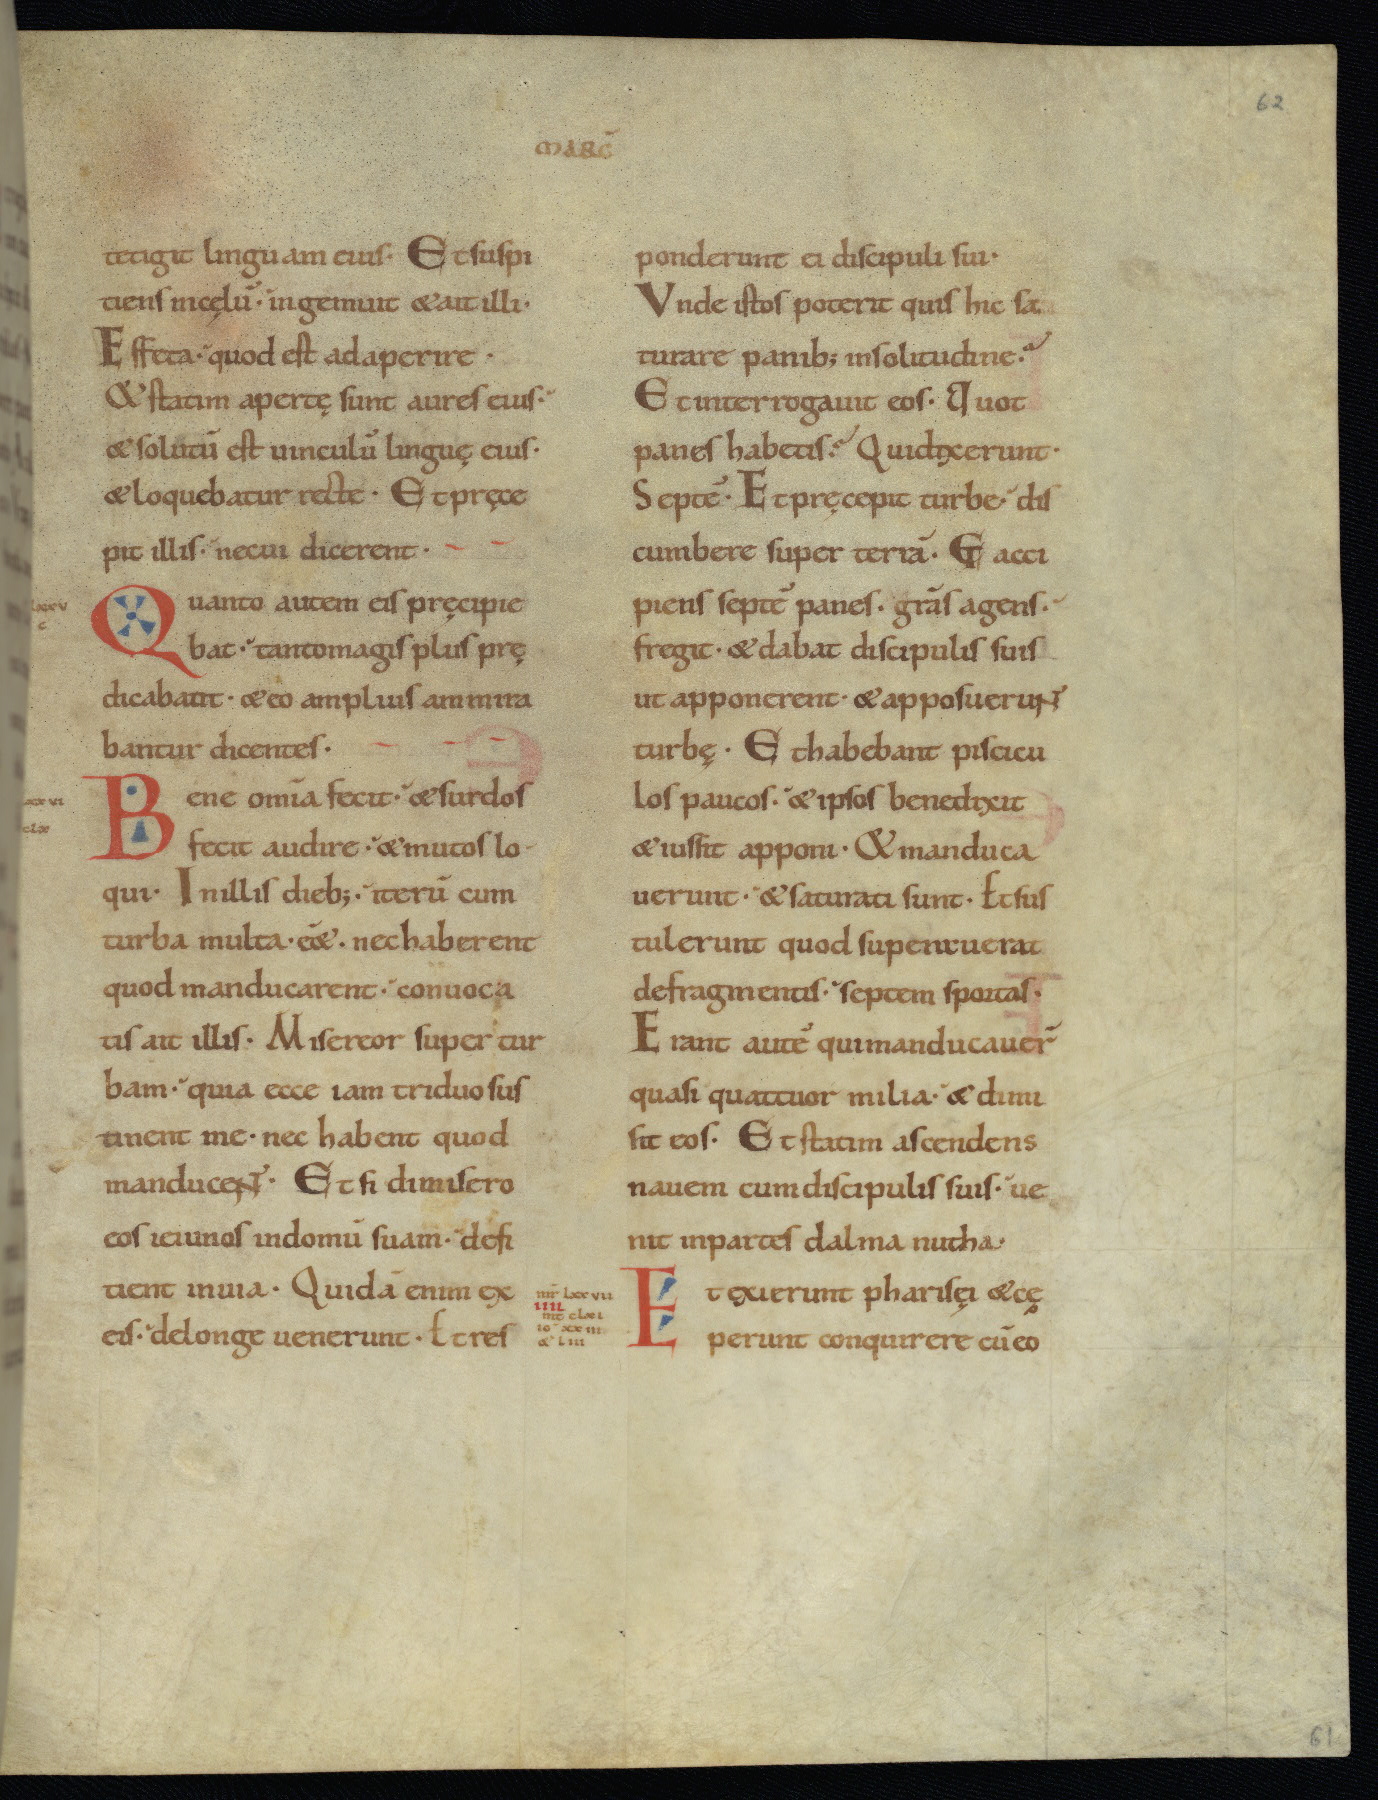 62
MARC̄
tetigit linguam eius· Et suspi
tiens in cęlū· ingemuit & ait illi·
Effeta· quod est adaperire·
& statim apertę sunt aures eius·
& solutū est uinculū linguę eius·
& loquebatur recte· Et pręce
pit illis· ne cui dicerent·
Quanto autem eis pręcipie
bat· tanto magis plus prę
dicabant· & eo amplius ammira
bantur dicentes·
Bene om̄ia fecit· & surdos
fecit audire· & mutos lo
qui· In illis dieb;· iterū cum
turba multa· eēt· nec haberent
quod manducarent· conuoca
tis ait illis· Misereor super tur
bam· quia ecce iam triduo sus
tinent me· nec habent quod
manducent· Et si dimisero
eos ieiunos in domū suam· defi
tient in uia· Quidā enim ex
eis· de longe uenerunt· Et res
ponderunt ei discipuli sui·
Vnde istos poterit quis hic sa
turare panib; in solitudine·
Et interrogauit eos· Quot
panes habetis· Qui dixerunt·
Septē· Et pręcepit turbe· dis
cumbere super terrā· Et acci
piens septē panes· grās agens·
fregit· & dabat discipulis suis
ut apponerent· & apposuerunt
turbę· Et habebant piscicu
los paucos· & ipsos benedixit
& iussit apponi· & manduca
uerunt· & saturati sunt· Et sus
tulerunt quod superauerat
de fragmentis· septem sportas·
Erant autē qui manducauer̄
quasi quattuor milia· & dimi
sit eos· Et statim ascendens
nauem cum discipulis suis· ue
nit in partes dalmanutha·
Et exierunt pharisęi & cę
perunt conquirere cū eo
61